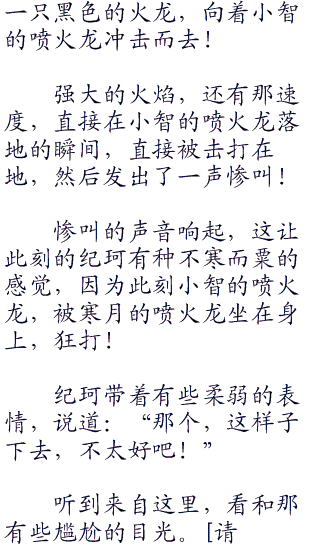 一只黑色的火龙，向着小智
的喷火龙冲击而去！
强大的火焰，还有那速
度，直接在小智的喷火龙落
地的瞬间，直接被击打在
地，然后发出了一声惨叫！
惨叫的声音响起，这让
此刻的纪珂有种不寒而粟的
感觉，因为此刻小智的喷火
龙，被寒月的喷火龙坐在身
上，狂打！
纪珂带着有些柔弱的表
情，说道：“那个，这样子
下去，不太好吧！”
听到来自这里，看和那
有些尴尬的目光。[请